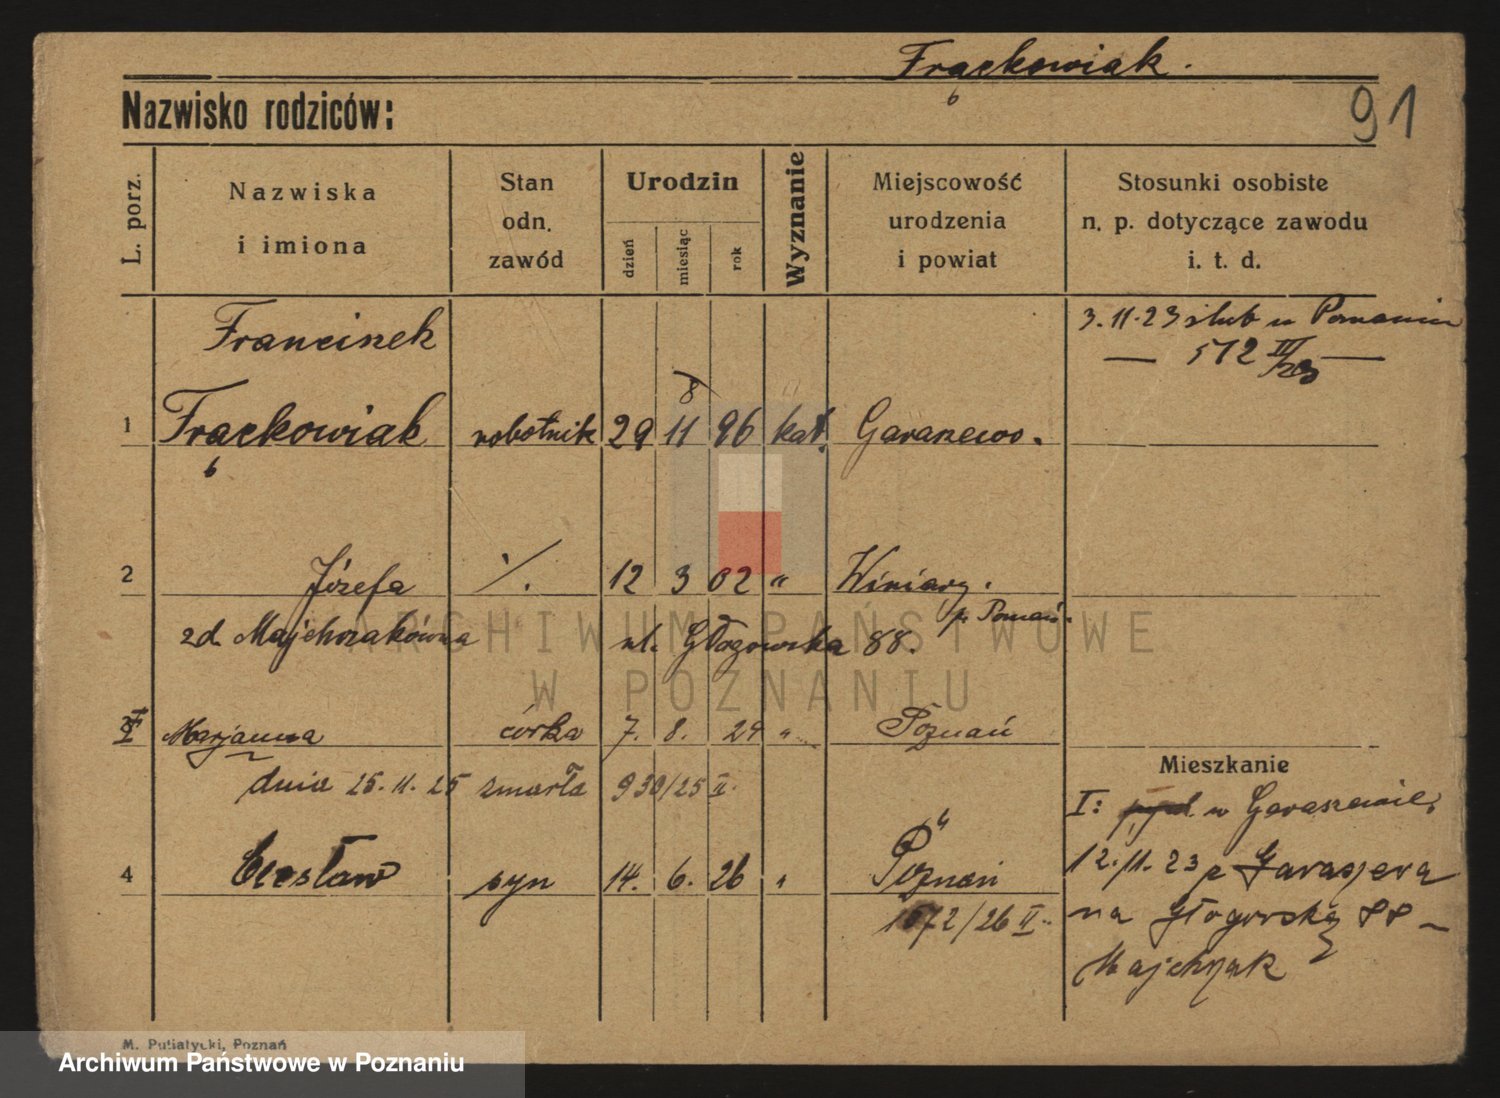 Frąckowiak.
91
Nazwisko rodziców:
L. porz.
Nazwiska
i imiona
Stan
odn.
zawód
Urodzin
dzień
miesiąc
rok
Wyznanie
Miejscowość
urodzenia
i powiat
Stosunki osobiste
n. p. dotyczące zawodu
i. t. d.
Franciszek
3.11.23 ślub w Poznaniu
— 512 III/23 —
8
1 Frąckowiak robotnik 29 11 96 kat. Garaszewo.
2 Józefa ./. 12 3 02 " Winiary.
p. Poznań.
zd. Majchrzakówna ul. Głogowska 88.
ARCHIWUM PAŃSTWOWE
W POZNANIU
Marjanna córka 7. 8. 24 " Poznań
dnia 25.11.25 zmarła 930/25 II.
Mieszkanie
I: w Garaszewie,
4 Czesław syn 14. 6. 26 " Poznań
1572/26 II.
12./11.23 z Garaszewa
na Głogowską 88 –
Majchrzak
M. Putiatycki, Poznań
Archiwum Państwowe w Poznaniu